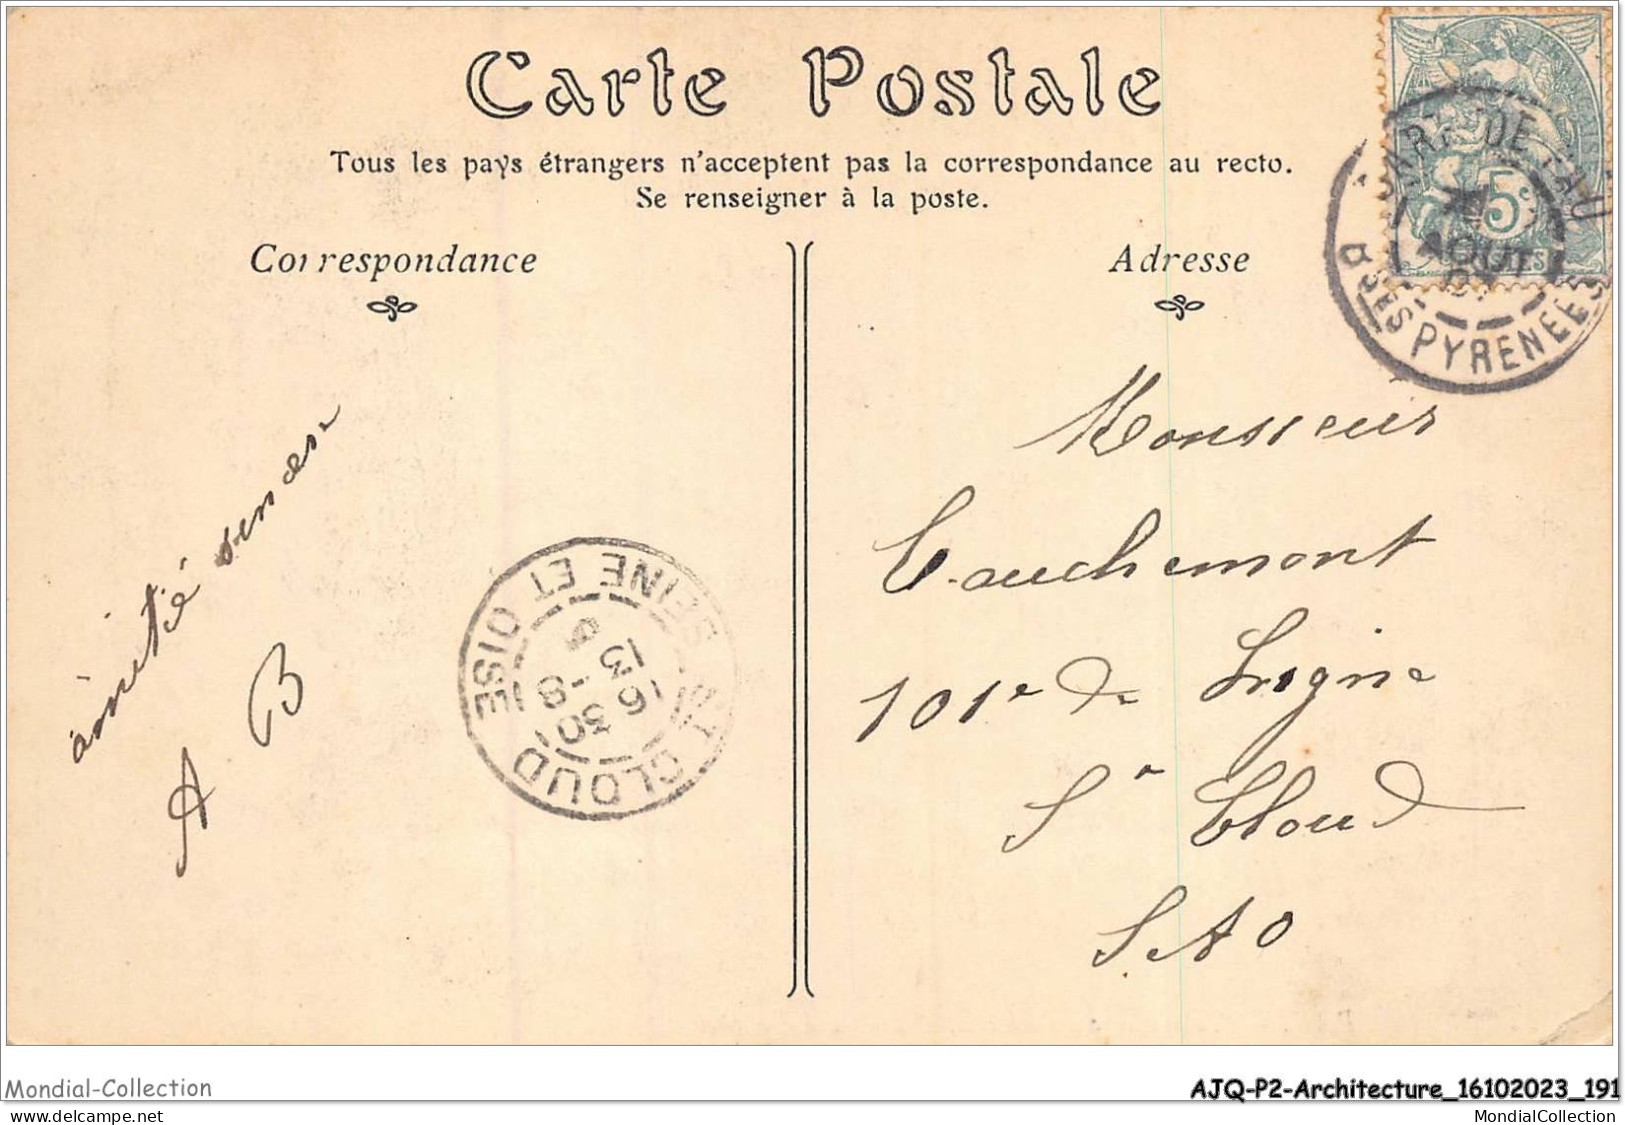 Carte Postale
Tous les pays étrangers n'acceptent pas la correspondance au recto.
Se renseigner à la poste.
Correspondance
Adresse
GARE DE PAU
5c
AOUT
BSES PYRENEES
Monsieur
Cauchemont
101 e de
St Cloud
S. et O
amitié
A B
ST CLOUD
SEINE ET OISE
16 30
13 - 8
Mondial-Collection
AJQ-P2-Architecture_16102023_191
MondialCollection